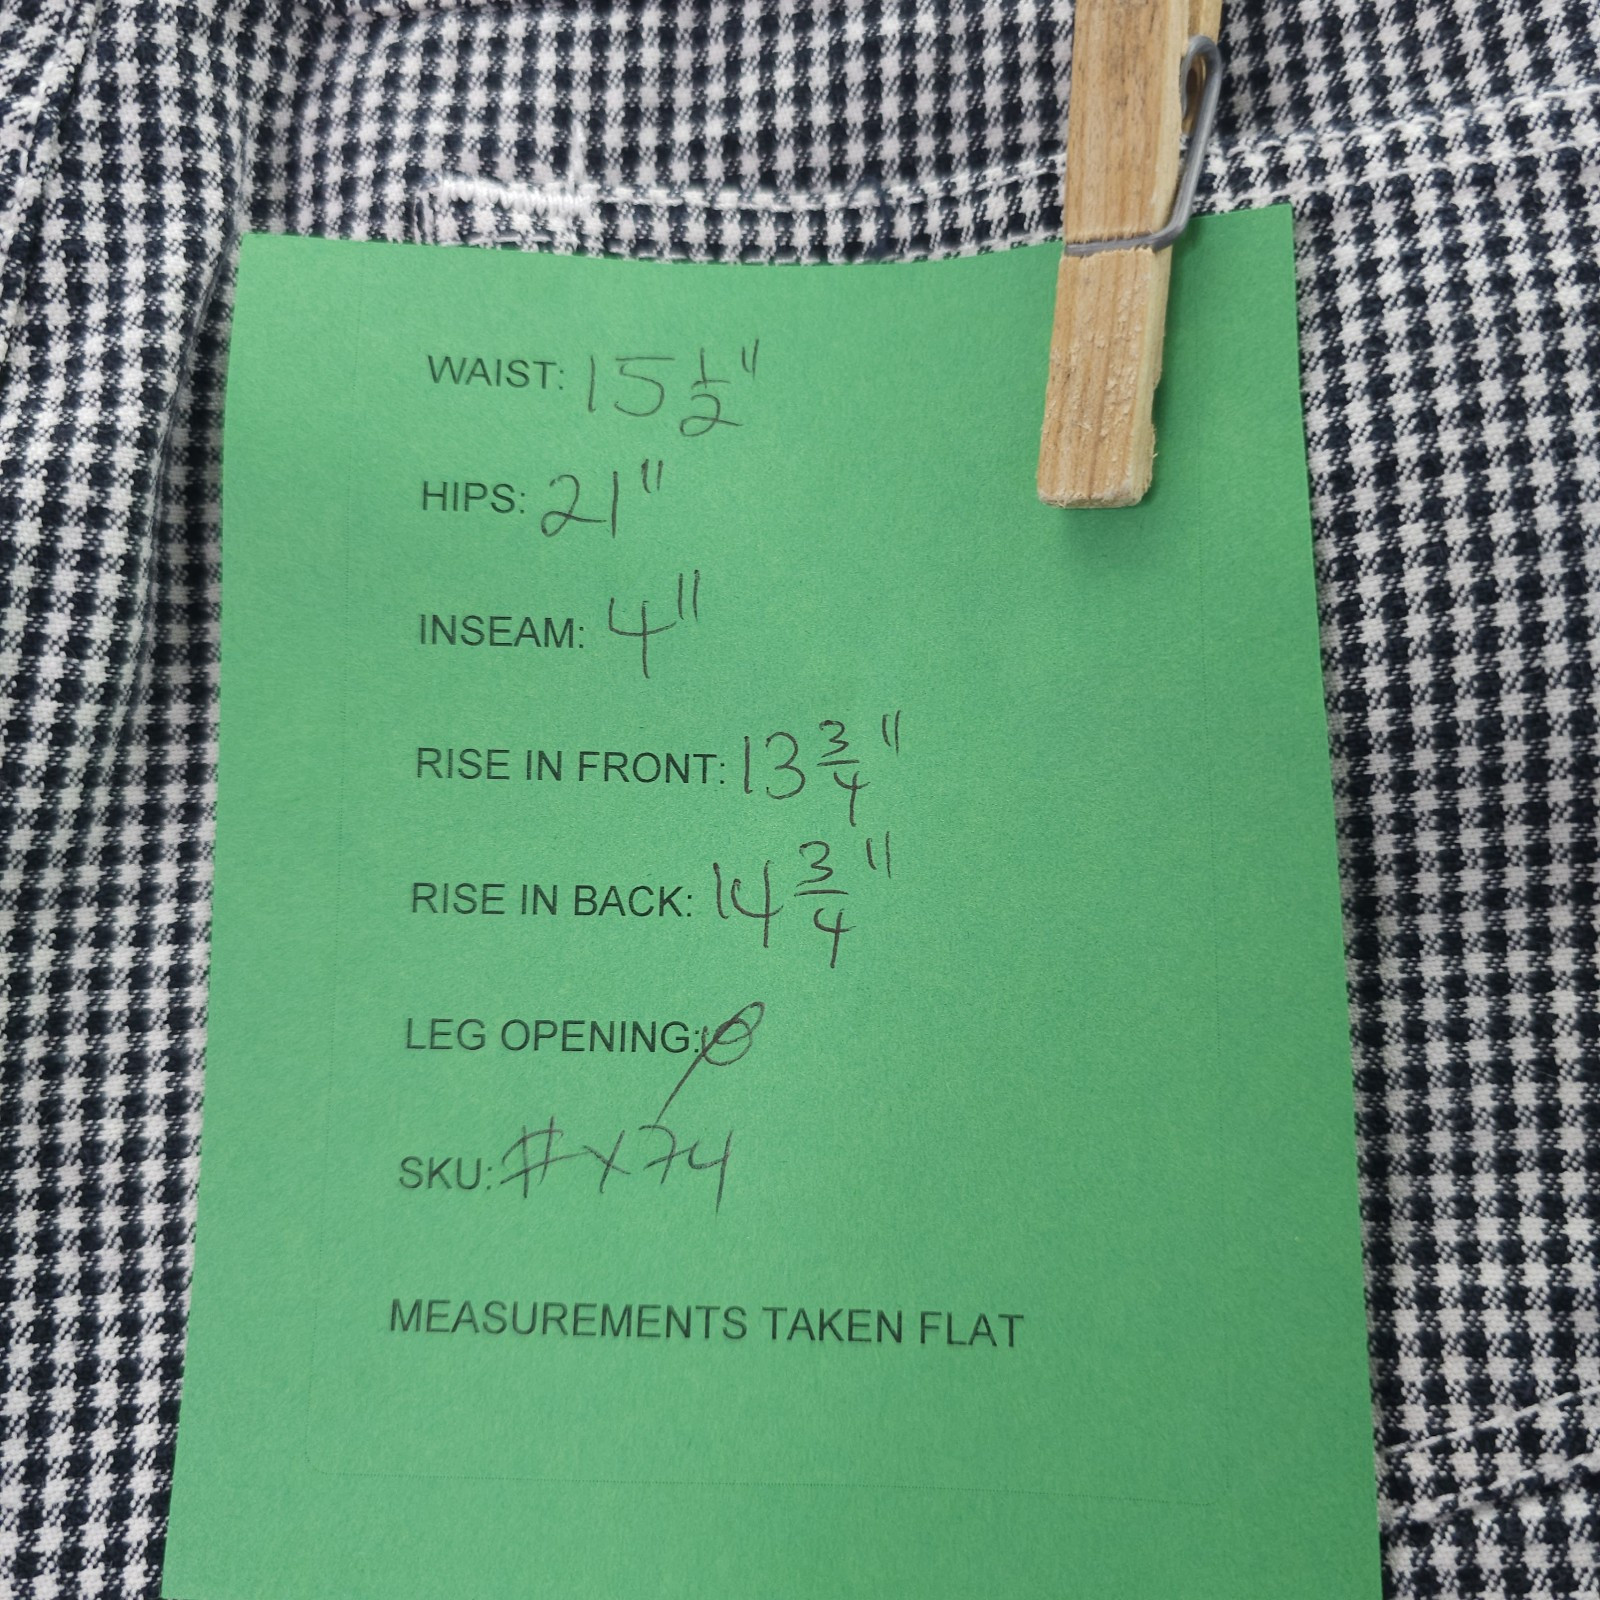 WAIST: 15 1/2"
HIPS: 21"
INSEAM: 4"
RISE IN FRONT: 13 3/4"
RISE IN BACK: 14 3/4"
LEG OPENING: Ø
SKU: #X74
MEASUREMENTS TAKEN FLAT